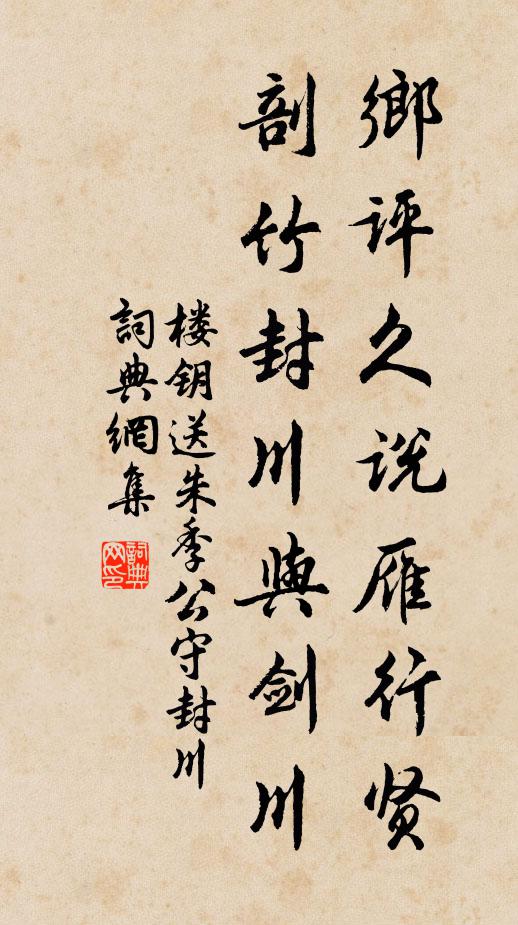 鄉评久说雁行贤
剖竹封川與剑川
楼钥送朱季公守封川
詞典網集
詞典网印